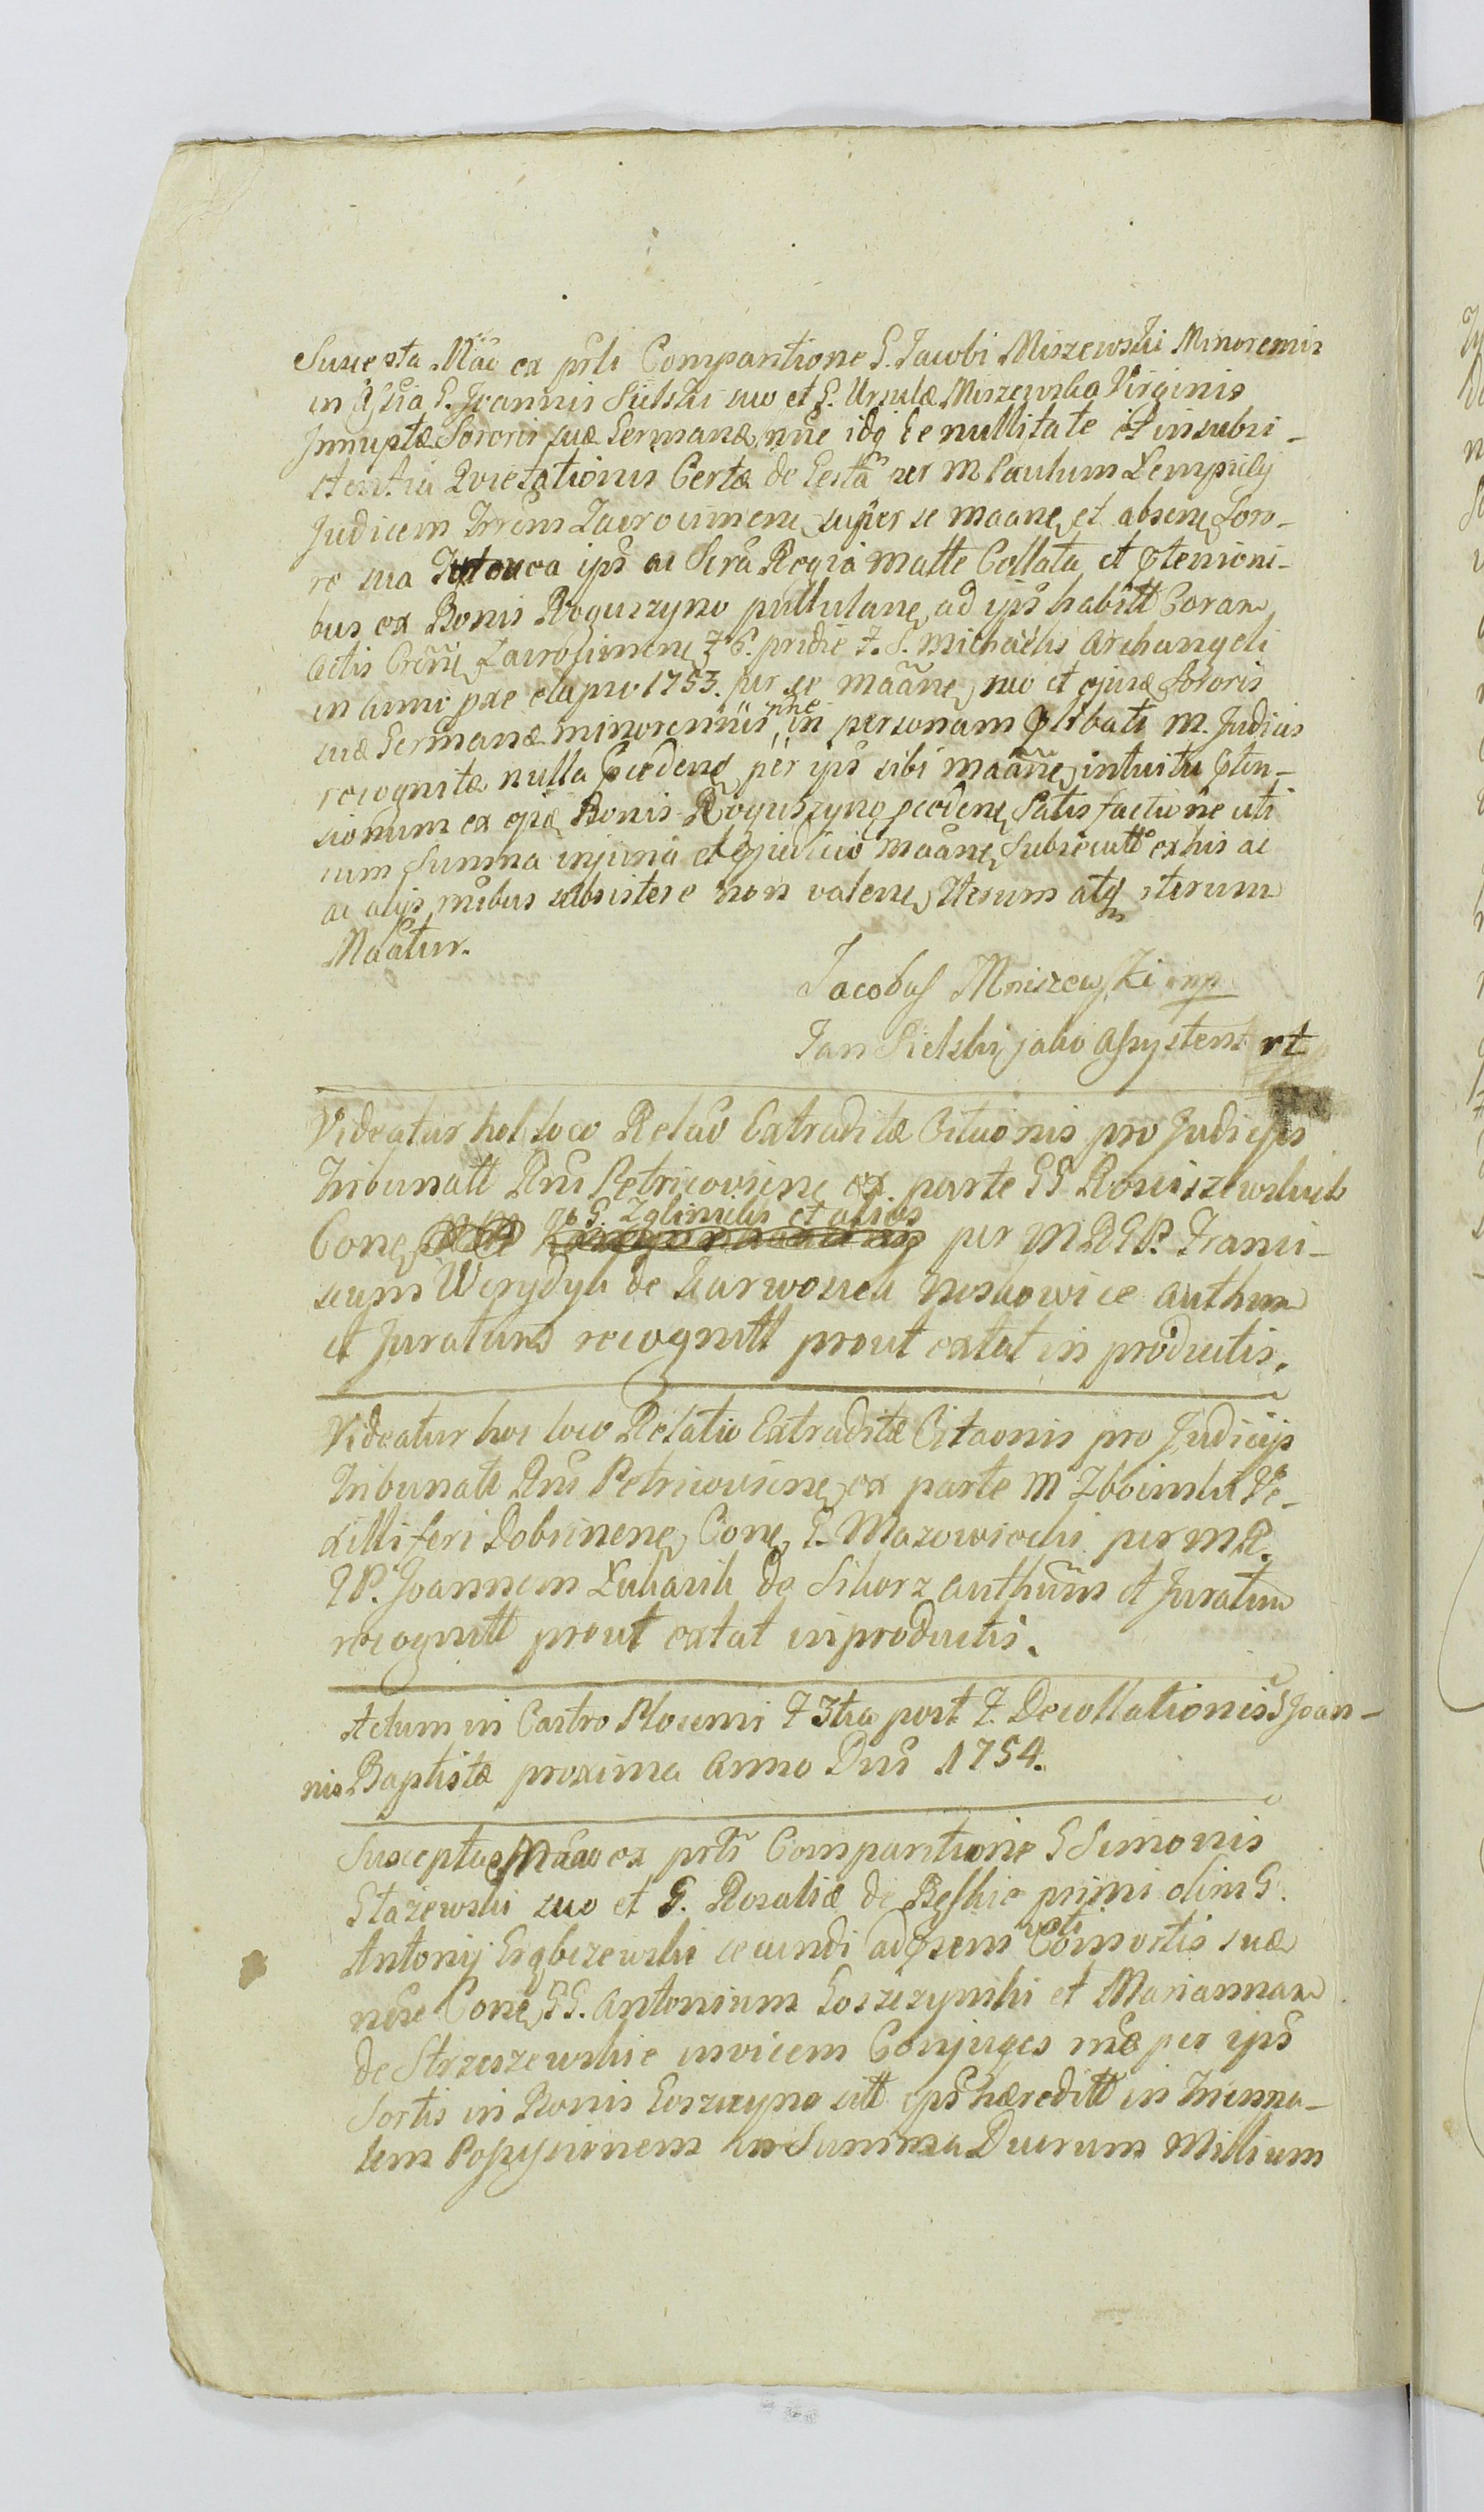 Suscepta Mãõ ex prti Comparitione G. Jacobi Miszewski Minorennis
in Assia G. Joannis Sielski suo et G. Ursulæ Miszewska Virginis
Innuptæ Sororis suæ Germanæ nñe idq de nullitate et insubsi-
stentia Quietationis Certæ de Gestā per M Paulum Łempicky
Judicem Trrēm Zawrocinens super se maane et absens Soro-
re sua ipš ac Scrā Regia Matte Collata et ptensioni-
bus ex Bonis Roguszyno pullulane ad ipš habitt Coram
Actis Zawrocinens F 6. pridie F. S. Michaëlis Archangeli
in Anno prae elapso 1753. per se maane suo et ejusæ Sororis
suæ Germanæ minorennis nñe in personam plibati M. Judicis
recognitæ nulla pcedens per ipš sibi maane intuitu pten-
sionum ex Bonis Roguszyno pcedens Satisfactione uti
cum Summa injuria et pjudicio maane Subsecutt ex his ac
ac alijs mõbus subsistere non valens Iterum atq iterum
Maatur.
Jacobus Miszewski mp
Jan Sielski jako Assystent rt
Videatur hoc loco Relaõ Extraditæ Citaõnis pro Judicijs
Tribunalt Rni Petricoviens ex parte GG Rosciszewskich
Cone G. Zglinickis et alios per M R G P. Franci-
scum de Karwosieki Noskowice authum
et Juratum recognitt prout extat in productis.
Videatur hoc loco Relatio Extraditæ Citaonis pro Judicijs
Tribunalt Rni Petricoviens ex parte M Zboinski Ve-
xilliferi Dobrinens Cone G. Mazowiecki per M R.
G P. Joannem Łukasik de Sikorz authum et Juratum
recognitt prout extat in productis.
Actum in Castro Plocensi F 3tia post F. Decollationis S Joan-
nis Baptistæ proxima Anno Dni 1754.
Susceptaq Mãõ ex prti Comparitione G Simonis
Stażewski suo et G. Rosaliæ de Beskie primi olim G.
Antonij secundi ad psens voti Consortis suæ
nõe Cone GG. Antonium Goszczynski et Mariannam
de Strzeszewskie invicem Conjuges per ipš
Sortis in Bonis Goszczyno sitt ipš hæreditt in Trienna-
lem Possessionem in Summa Duorum Millium